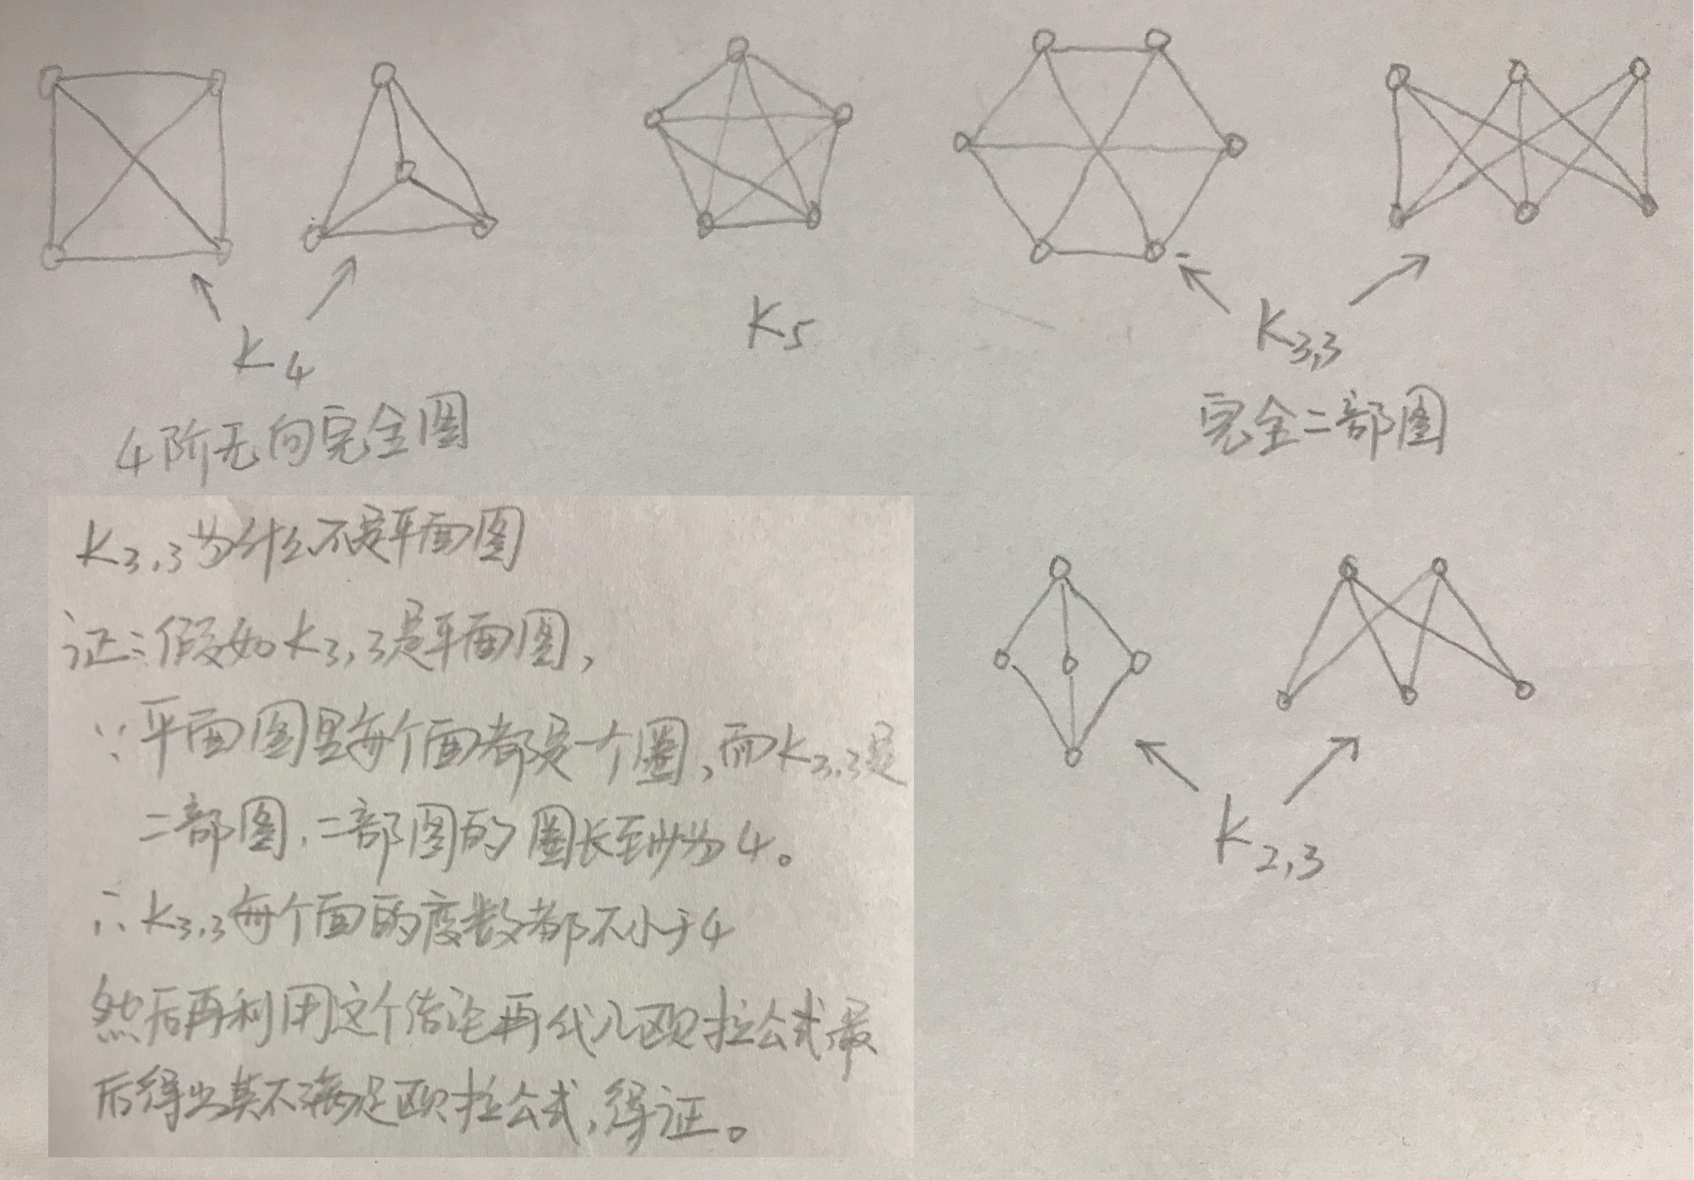 K4
4阶无向完全图
K5
K3,3
完全二部图
K3,3为什么不是平面图
证:假如K3,3是平面图,
∵平面图里每个面都是一个圈,而K3,3是
二部图,二部图的圈长至少为4。
∴K3,3每个面的度数都不小于4
然后再利用这个结论再代入欧拉公式最
后得出其不满足欧拉公式,得证。
K2,3